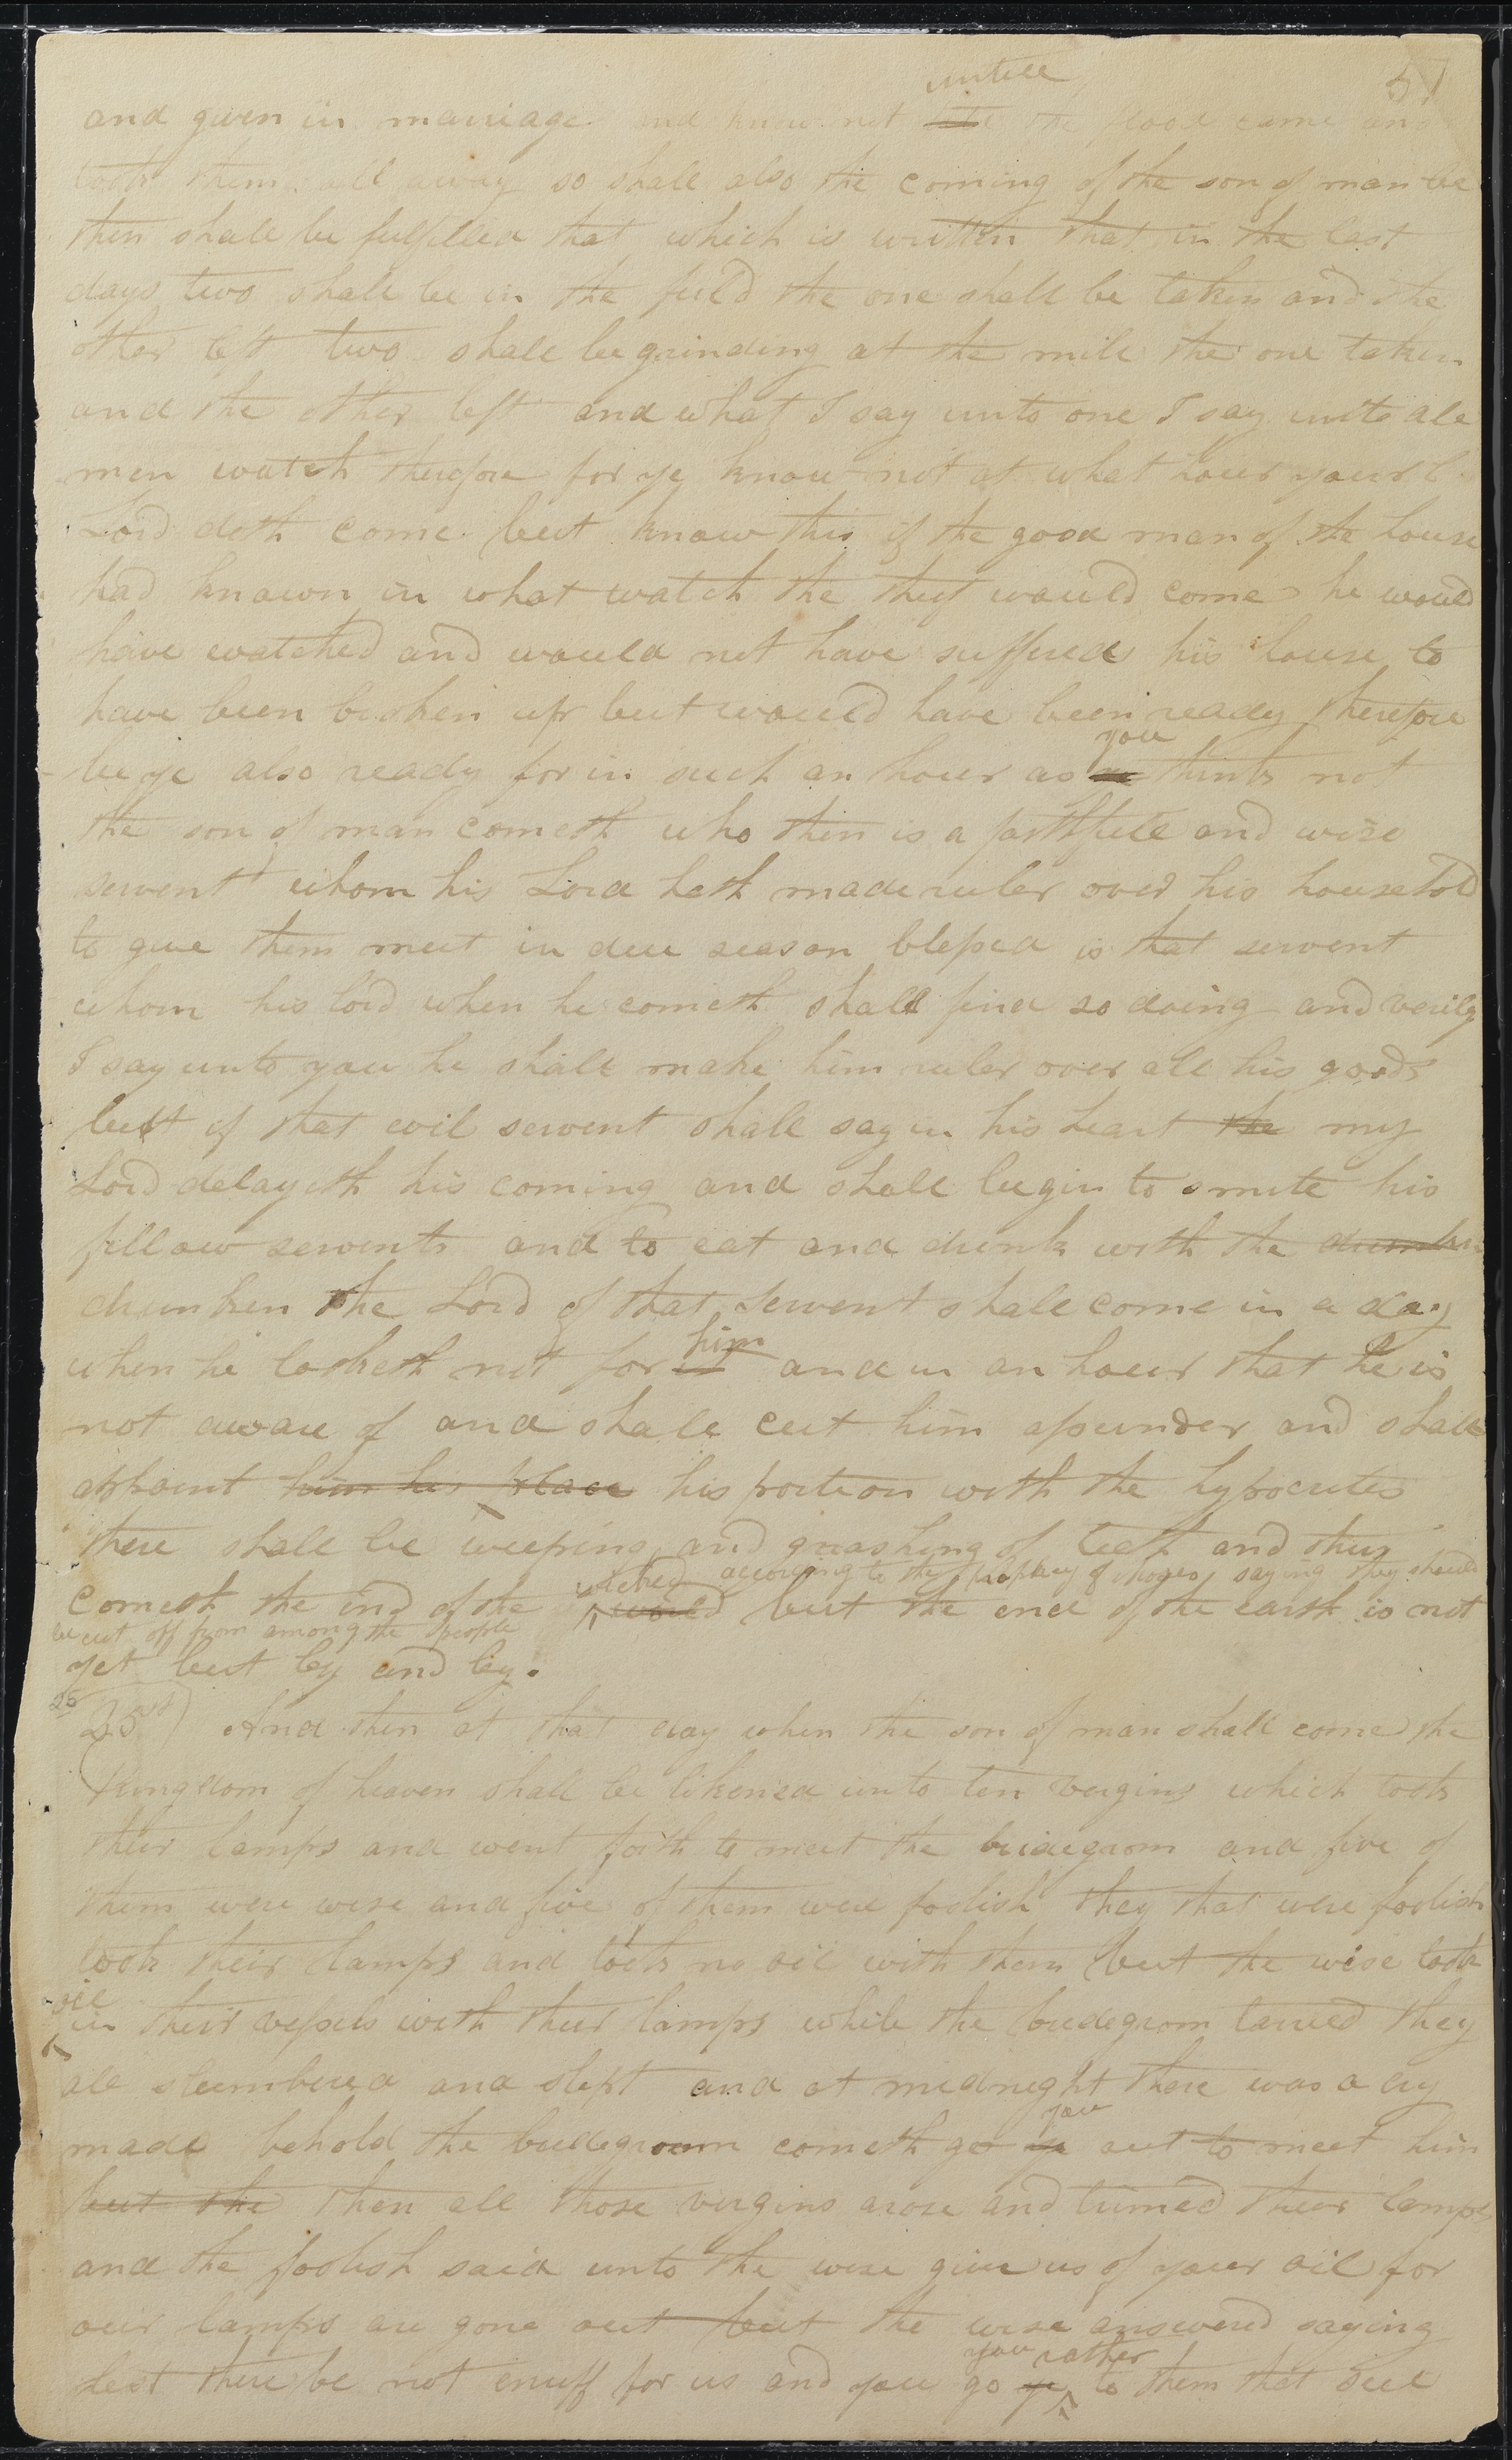 51
untill
and given in marriage and knew not the flood came and
took them all away so shall also the coming of the son of man be
then shall be fulfilled that which is written that in the last
days two shall be in the field the one shall be taken and the
other left two shall be grinding at the mill the one taken
and the other left and what I say unto one I say unto all
men watch therefore for ye know not at what hour your l
Lord doth come but know this if the good man of the house
had known in what watch the theif would come he would
have watched and would not have suffered his house to
have been broken up but would have been ready therefore
you
be ye also ready for in such an hour as ye think not
the son of man cometh who then is a faithfull and wise
servent whom his Lord hath made ruler over his household
to give them meet in due season blessed is that servent
whom his lord when he cometh shall find so doing and verily
I say unto you he shall make him ruler over all his goods
but if that evil servent shall say in his heart the my
Lord delayeth his coming and shall begin to smite his
fellow servents and to eat and drink with the drunken
drunken the Lord of that servent shall come in a day
him
when he looketh not for it and in an hour that he is
not aware of and shall cut him assunder and shall
appoint him his place his portion with the hypocrites
there shall be weeping and gnashing of teeth and thus
wicked according to the prophecy of Moses saying they should
cometh the end of the world but the end of the earth is not
be cut off from among the people
yet but by and by.
25
25 And then at that day when the son of man shall come the
Kingdom of heaven shall be likened unto ten virgins which took
their lamps and went forth to meet the bridegrom and five of
them were wise and five of them were foolish they that were foolish
took their lamps and took no oil with them but the wise took
oil
in their vessels with their lamps while the bridegrom tarried they
all slumbered and slept and at midnight there was a cry
you
made behold the bridegroom cometh go ye out to meet him
but the then all those virgins arose and trimed their lamps
and the foolish said unto the wise give us of your oil for
our lamps are gone out but the wise answered saying
you rather
lest there be not enuff for us and you go ye to them that sell